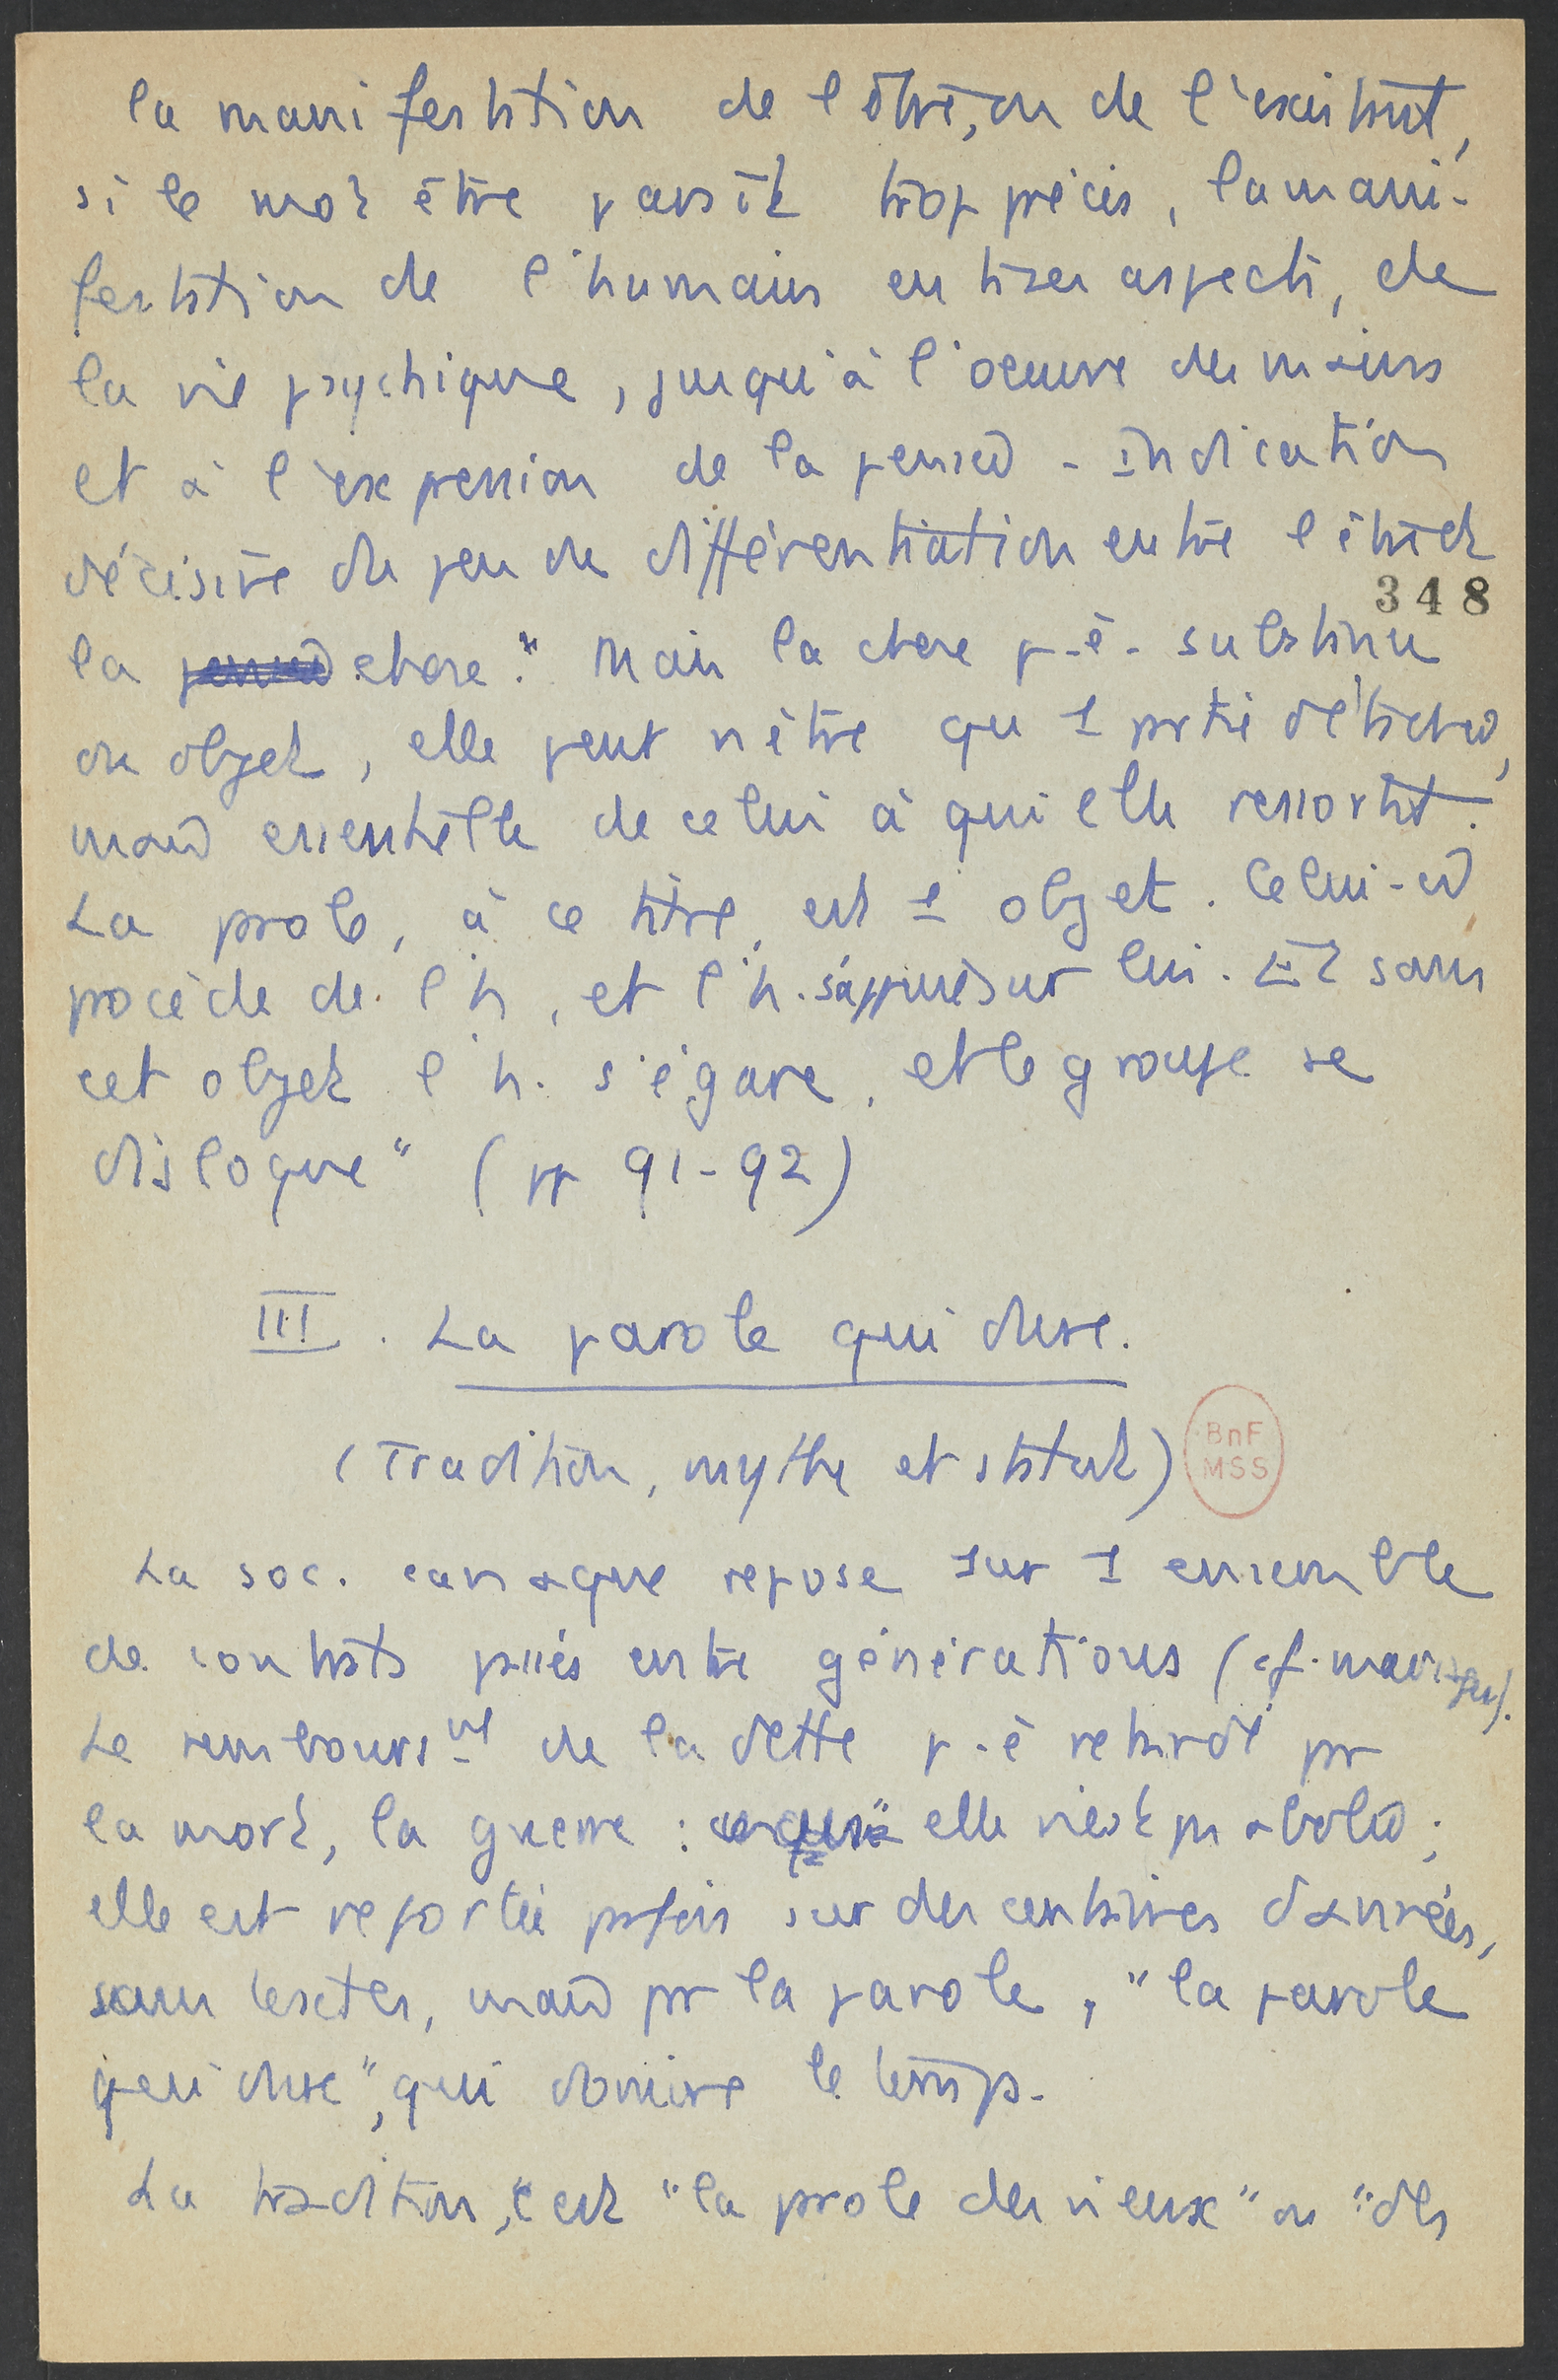 la manifestation de l'être, ou de l'existant,
si le mot être paraît trop précis, la mani-
festation de l'humain en ts ses aspects, de
la vie psychique, jusqu'à l'oeuvre des mains
et à l'expression de la pensée - indication
décisive du peu de différentiation entre l'être et
348
la pensée chose." Mais la chose p.ê. substance
ou objet, elle peut n'être qu'1 partie détachée,
mais essentielle de celui à qui elle ressortit.
La parole, à ce titre, est 1 objet. Celui-ci
procède de l'h, et l'h. s'appuie sur lui. Et sans
cet objet l'h. s'égare, et le groupe se
disloque" (pp 91-92)
III. La parole qui dure.
(Tradition, mythe et statut)
BnF
MSS
La soc. canaque repose sur 1 ensemble
de contrats passés entre générations (cf. mariage).
Le remboursmt de la dette p.ê retardé pr
la mort, la guerre : elle n'est pas abolie;
elle est reportée parfois sur des centaines d'années,
sans textes, mais pr la parole, "la parole
qui dure", qui domine le temps.
La tradition, c'est "la parole des vieux" ou "des